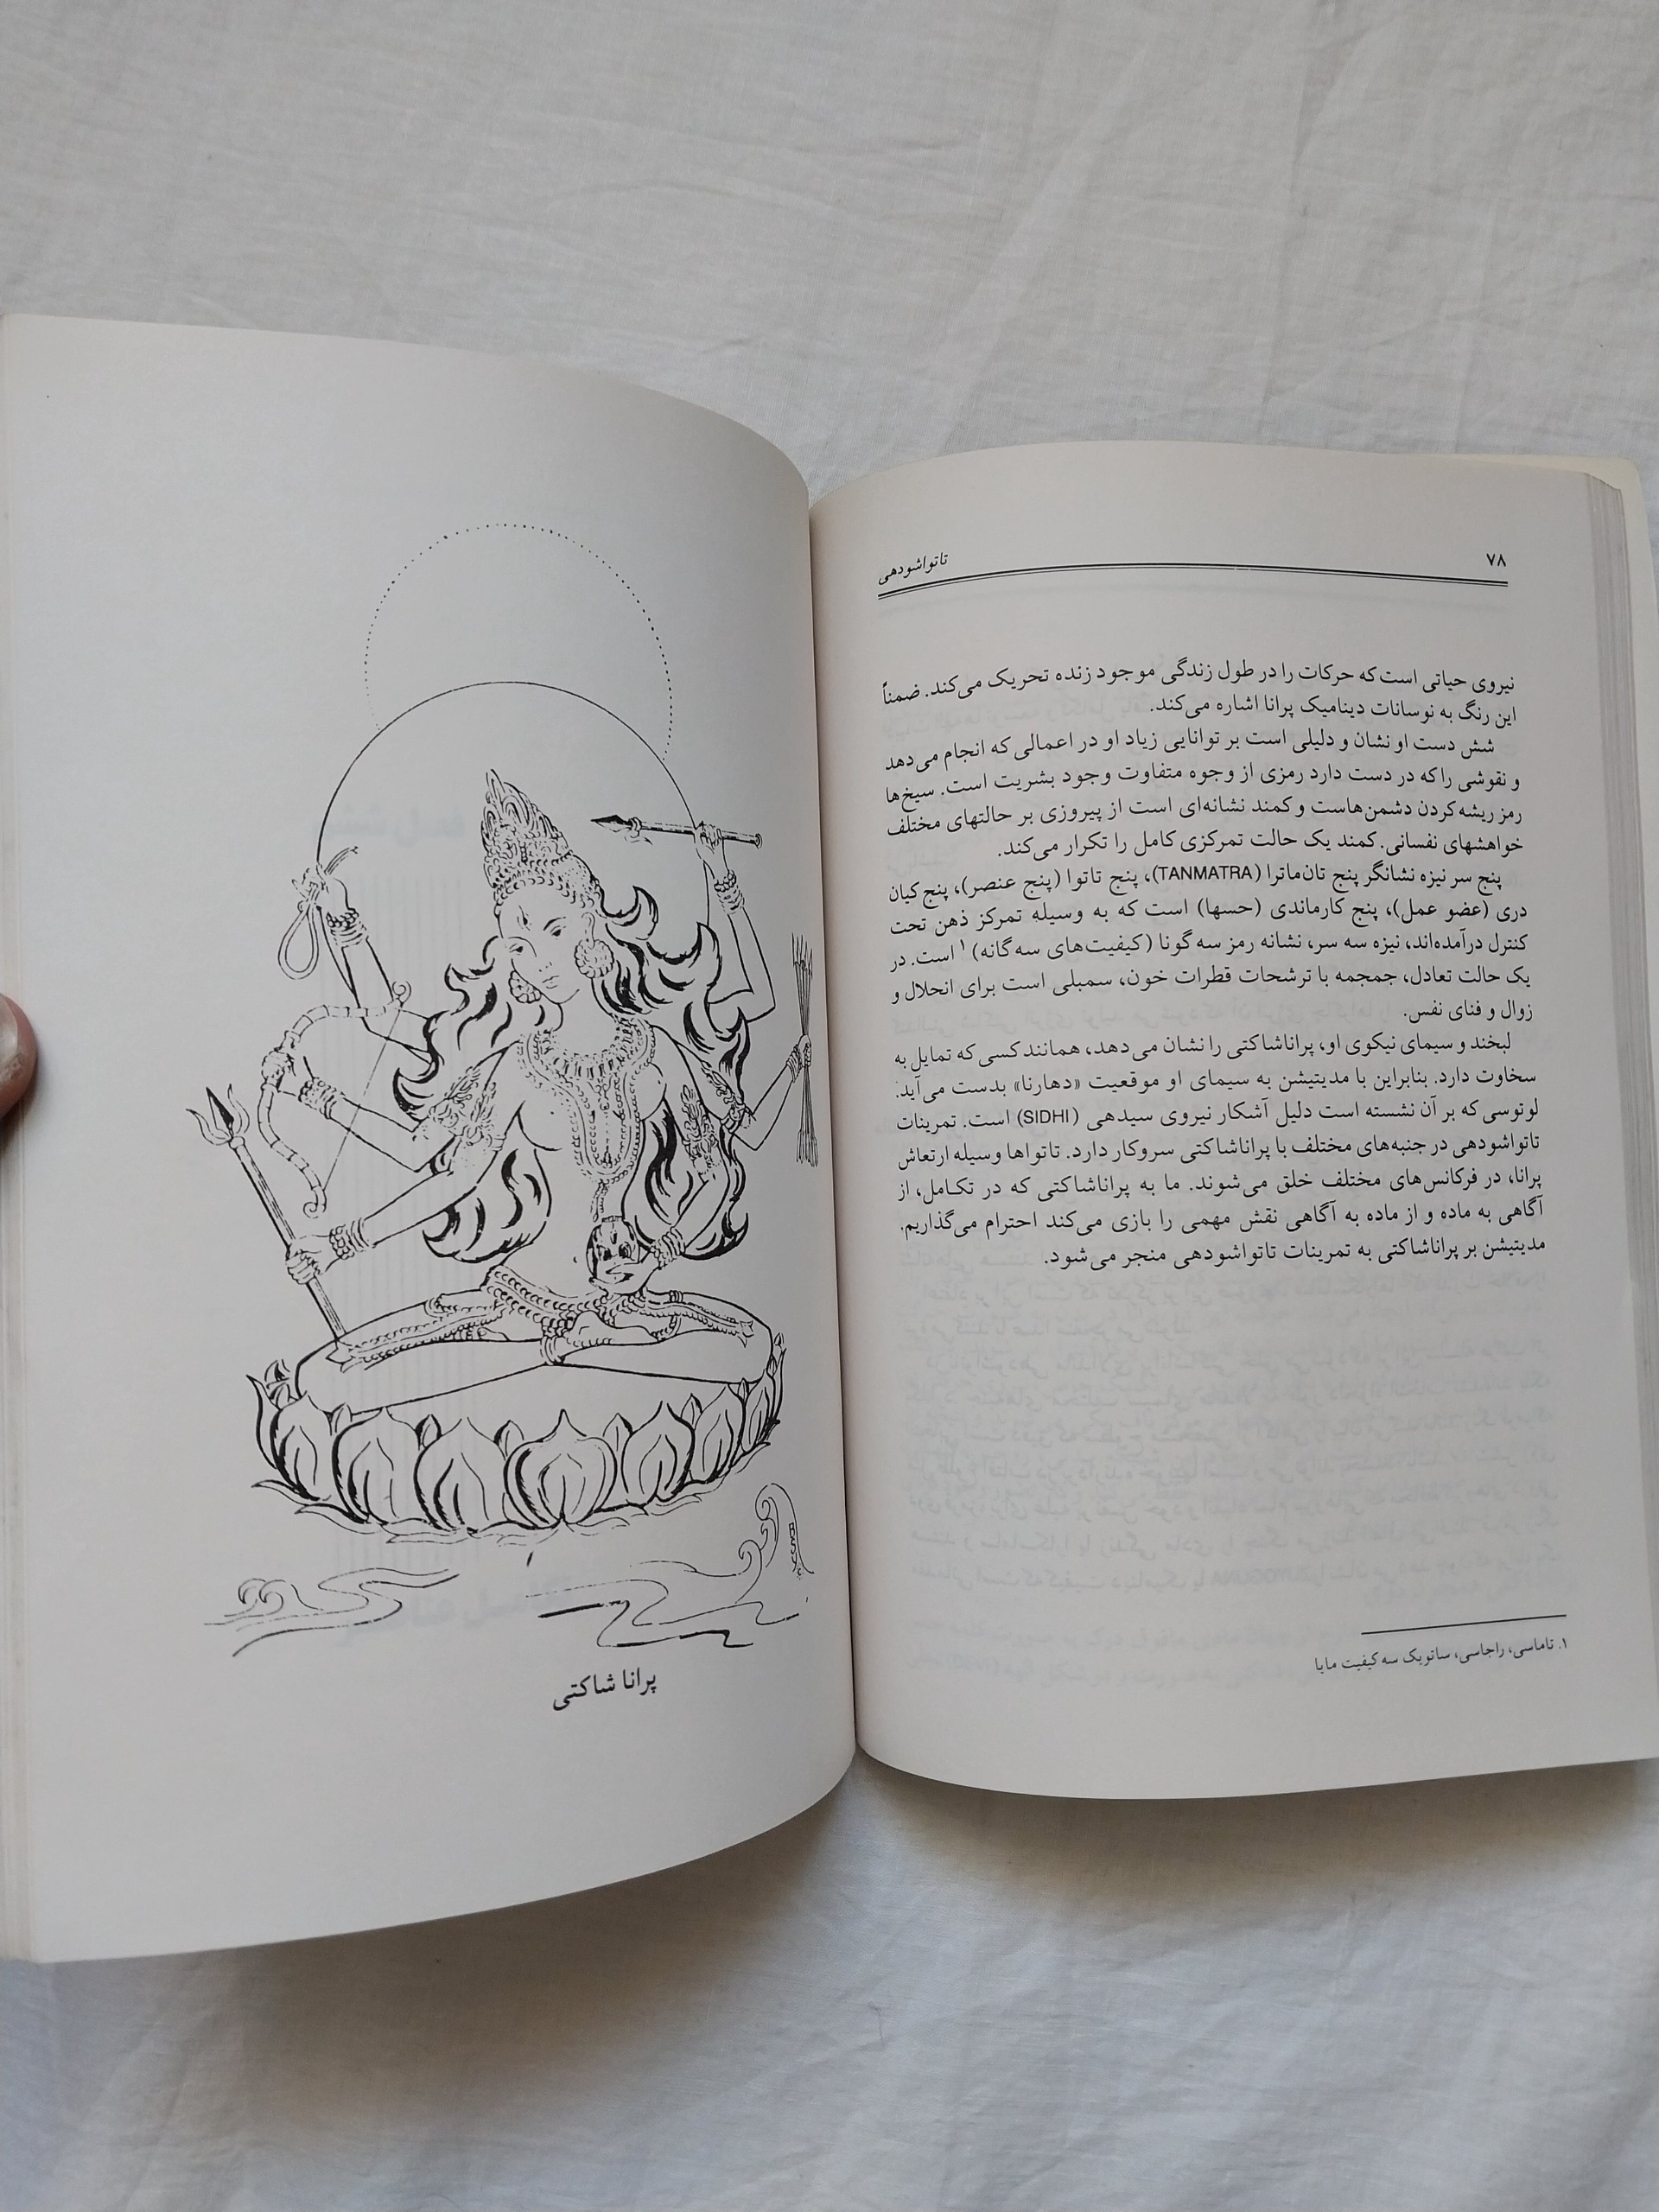 ۷۸
تاتواشودهی
نیروی حیاتی است که حرکات را در طول زندگی موجود زنده تحریک می‌کند. ضمناً
این رنگ به نوسانات دینامیک پرانا اشاره می‌کند.
شش دست او نشان و دلیلی است بر توانایی زیاد او در اعمالی که انجام می‌دهد
و نقوشی را که در دست دارد رمزی از وجوه متفاوت وجود بشریت است. سیخ‌ها
رمز ریشه کردن دشمن‌هاست و کمند نشانه‌ای است از پیروزی بر حالتهای مختلف
خواهشهای نفسانی. کمند یک حالت تمرکزی کامل را تکرار می‌کند.
پنج سر نیزه نشانگر پنج تان‌ماترا (TANMATRA)، پنج تاتوا (پنج عنصر)، پنج کیان
دری (عضو عمل)، پنج کارماندی (حسها) است که به وسیله تمرکز ذهن تحت
کنترل درآمده‌اند، نیزه سه سر، نشانه رمز سه گونا (کیفیت‌های سه گانه) ۱ است. در
یک حالت تعادل، جمجمه با ترشحات قطرات خون، سمبلی است برای انحلال و
زوال و فنای نفس.
لبخند و سیمای نیکوی او، پراناشاکتی را نشان می‌دهد، همانند کسی که تمایل به
سخاوت دارد. بنابراین با مدیتیشن به سیمای او موقعیت «دهارنا» بدست می‌آید.
لوتوسی که بر آن نشسته است دلیل آشکار نیروی سیدهی (SIDHI) است. تمرینات
تاتواشودهی در جنبه‌های مختلف با پراناشاکتی سروکار دارد. تاتواها وسیله ارتعاش
پرانا، در فرکانس‌های مختلف خلق می‌شوند. ما به پراناشاکتی که در تکامل، از
آگاهی به ماده و از ماده به آگاهی نقش مهمی را بازی می‌کند احترام می‌گذاریم.
مدیتیشن بر پراناشاکتی به تمرینات تاتواشودهی منجر می‌شود.
۱. تاماسی، راجاسی، ساتویک سه کیفیت مایا
پرانا شاکتی